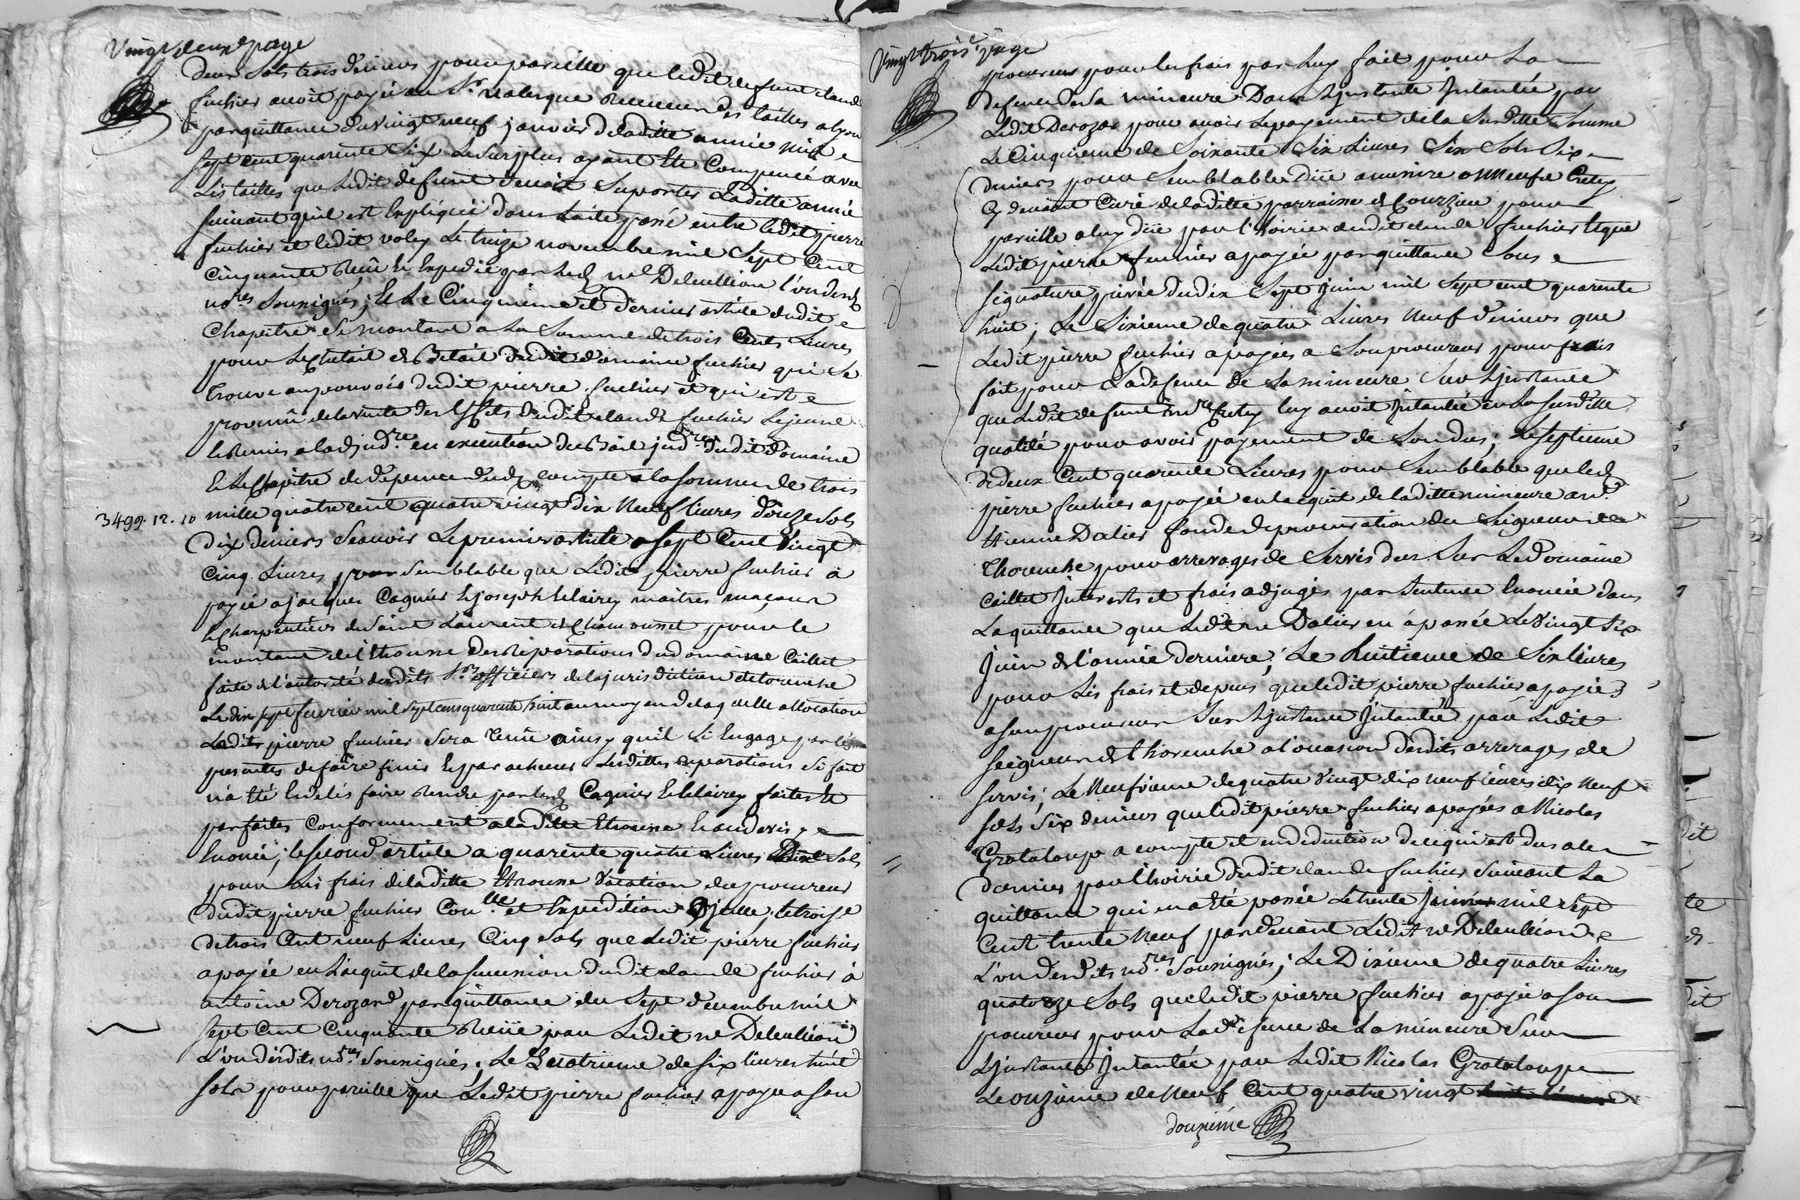 Vingt deux.e page
deux sols trois deniers pour pareille que ledit defunt claude
fuchier avoit payé au Sr. receveur des tailles a lyon
par quittance du vingt neuf janvier de laditte année mil
sept cent quarente six le surplus ayant eté compencé avec
les tailles que ledit defunt devoit suporter laditte année
suivant qu'il est expliqué dans l'acte passé entre ledit pierre
fuchier et ledit voley le treize novembre mil sept cent
cinquante receu et expedié par led. me Deleullion l'un desd.
nores soussignés; et le cinquieme et dernier article dudit
chapitre se montant a la somme de trois cents livres
pour le chetail et betail dudit domaine fuchier qui se
trouve au pouvoir dudit pierre fuchier et qui est
provenü de la vente des effets dudit claude fuchier le jeune
et remis a l'adjudre en execution du bail judre dudit domaine
et le chapitre de depence dud. compte a la somme de trois
3499. 12. 10 mille quatre cent quatre vingt dix neuf livres douze sols
dix deniers scavoir le premier article a sept cent vingt
cinq livres pour semblable que ledit pierre fuchier a
payée a jacques Cagnier et joseph Lelairey maitres macons
et charpentiers de Saint Laurent de Chamousset pour le
montant de l'etrousse des reparations du domaine Caillet
faite de l'autorité desdits Srs officiers de la jurisdiction de torenche
le dix sept fevrier mil sept cens quarente huit au moyen de laquelle allocation
ledit pierre fuchier sera tenü ainsy qu'il s'i engage par les
presentes de faire finir et parachever lesdittes reparations si fait
n'a été et de les faire rendre par lesd. Cagnier et Lelairey faites et
parfaites conformement a laditte etrousse et au devis y
enoncé; le second article a quarente quatre livres sols
pour les frais de laditte etrousse vacation du procureur
dudit pierre fuchier conlle et expedition d'jcelle; le troisze
de trois cent neuf livres cinq sols que ledit pierre fuchier
a payée en l'acquit de la succession dudit claude fuchier à
antoine Derozard par quittance du sept decembre mil
sept cent cinquante receüe par ledit me Deleullion
l'un desdits nores soussignés; Le quatrieme de six livres huit
sols pour pareille que ledit pierre fuchier a payé a son
Vingt trois.e page
procureur pour les frais par luy fait pour la
defence de sa mineure dans l'justance jntantée par
ledit Derozar pour avoir le payement de la susditte somme
Le cinquieme de soixante six livres six sols six
deniers pour semblable düe a messire Crety
cy devant curé de laditte parroisse de Courzieu pour
pareille a luy düe par l'hoirie dudit claude fuchier lequel
ledit pierre fuchier a payée par quittance sous
signature privée du dix sept juin mil sept cent quarente
huit; Le sixieme de quatre livres neuf deniers que
ledit pierre fuchier a payées a son procureur pour frais
fait pour la defence de la mineure sur l'justance
que ledit defunt mre Crety luy avoit jntantée en la susditte
qualité pour avoir payement de son dus; Le septieme
de deux cent quarente livres pour semblable que led.
pierre fuchier a payée en lacquit de laditte mineure a mr
etienne Dalier fondé de procuration du seigneur de
thorenche pour arrerages de servis deus sur le domaine
caillet jnterests et frais adjugés par sentence enoncée dans
la quittance que ledit me Dalier en a passée le vingt six
juin de l'année derniere; Le huitieme de six livres
pour les frais et depens que ledit pierre fuchier a payés
a son procureur sur l'justance jntantée par ledit
seigneur de thorenche a l'occasion desdits arrerages de
servis; Le neufvieme de quatre vingt dix neuf livres dix neuf
sols six deniers que ledit pierre fuchier a payés a Nicolas
Grataloup a compte et en deduction de ce qui est dus a ce
dernier par l'hoirie dudit claude fuchier suivant la
quittance qui en a eté passée le trente mil sept
cent trente neuf par devant ledit me Deleullion
l'un desdits nores soussignés; Le Dixieme de quatre livres
quatorze sols que ledit pierre fuchier a payée a son
procureur pour la defence de la mineure sur
l'justance jntantée par ledit Nicolas Grataloupe
Le onzieme de neuf cent quatre vingt
douzieme